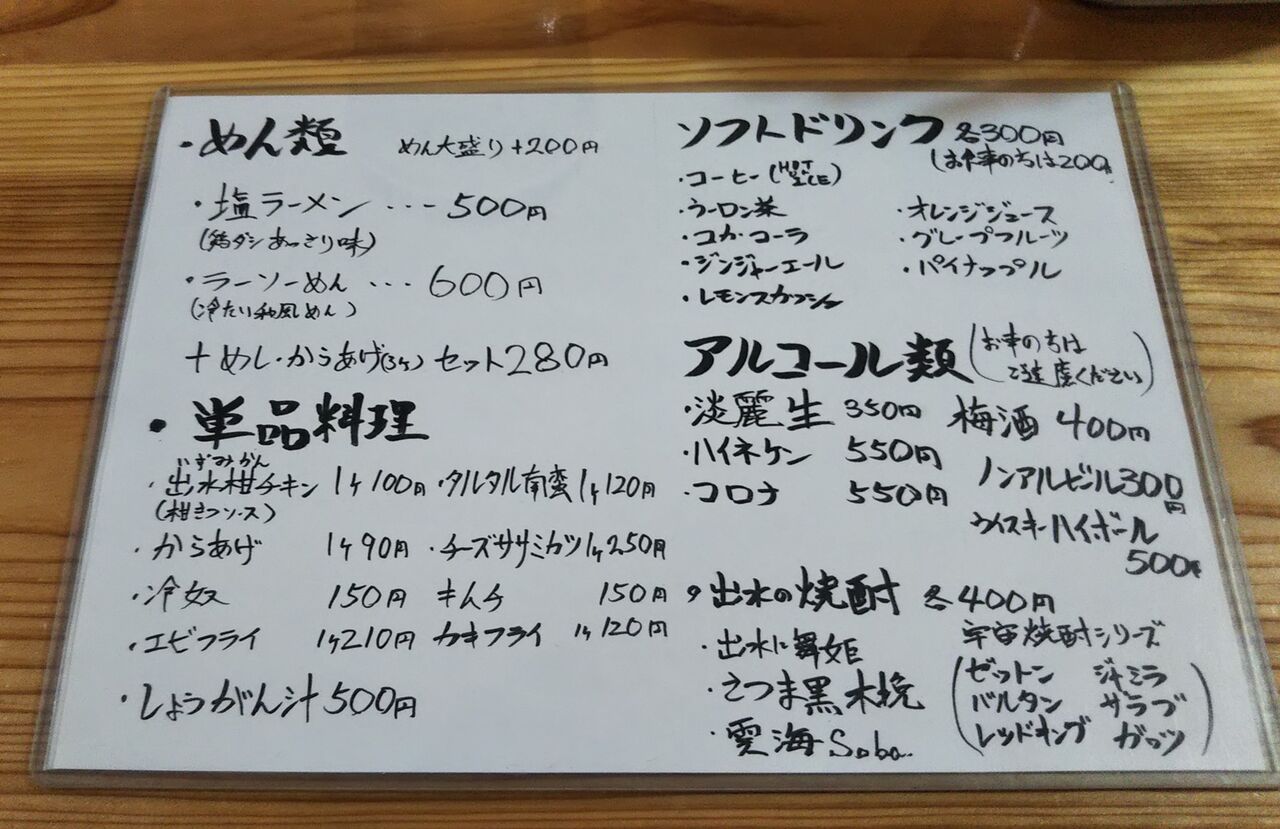 ・めん類 めん大盛り+200円
・塩ラーメン・・・500円
(鶏ダシあっさり味)
・ラーソーめん・・・600円
(冷たい和風めん)
+めし・からあげ(3ヶ)セット280円
・単品料理
いずみかん
・出水柑チキン 1ヶ100円
(柑きつソース)
・タルタル南蛮 1ヶ120円
・からあげ 1ヶ90円
・チーズササミカツ 1ヶ250円
・冷奴 150円
キムチ 150円
・エビフライ 1ヶ210円
カキフライ 1ヶ120円
・しょうがん汁 500円
ソフトドリンク 各300円
(お食事のちは200円
・コーヒー(HOT ICE)
・ウーロン茶
・コカ・コーラ
・ジンジャーエール
・レモンスカッシュ
・オレンジジュース
・グレープフルーツ
・パイナップル
アルコール類(お車の方は
ご遠慮ください)
・淡麗生 350円
・ハイネケン 550円
・コロナ 550円
梅酒 400円
ノンアルビール300円
ウイスキーハイボール
500円
・出水の焼酎 各400円
・出水に舞姫
・さつま黒木挽
・雲海Soba
宇宙焼酎シリーズ
(ゼットン ジャミラ
バルタン ザラブ
レッドキング ガッツ)